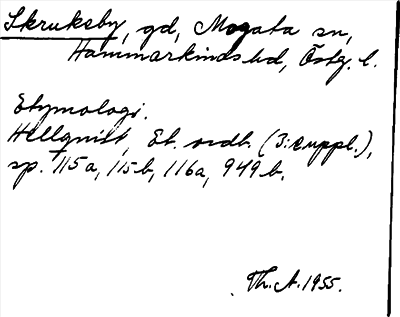 Skruksby, gd, Mogata sn,
Hammarkinds hd, Östg. l.
Etymologi.
Hellquist, Et. ordb. (3: suppl.),
sp. 115a, 115b, 116a, 949b.
Th. A. 1955.